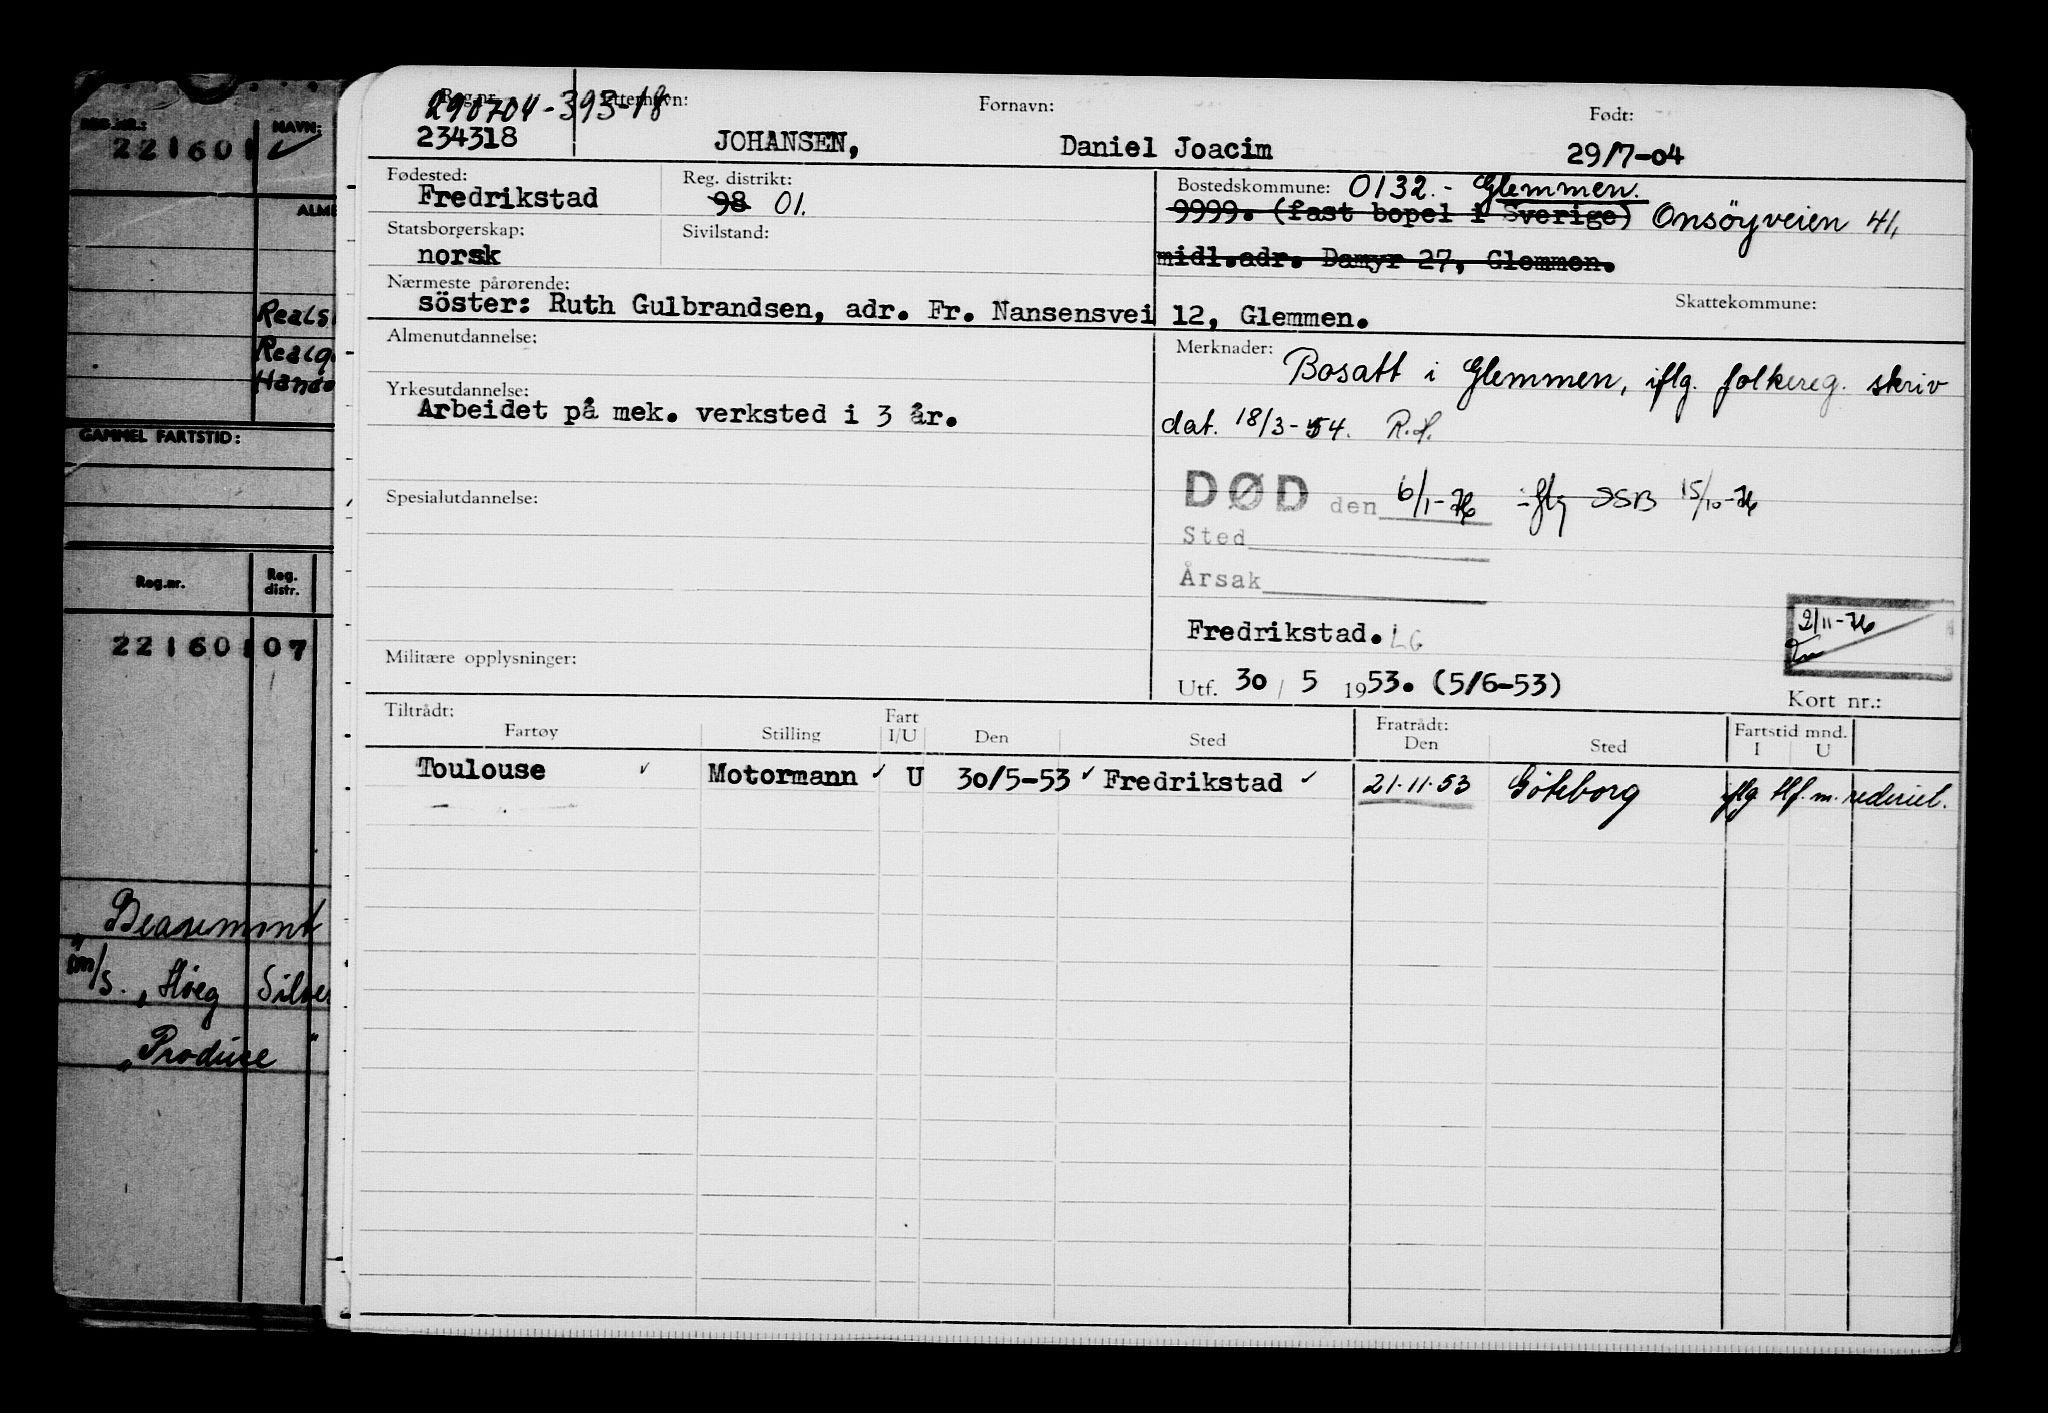 REG.NR.: NAVN:
221601
GAMMEL FARTSTID:
Reg.nr. Reg. distr.
221601 07
"Beaumont
m/s. "Höeg
"Produce"
Reg.nr. Etternavn: Fornavn: Født:
290704-393-18
234318 JOHANSEN, Daniel Joacim 29/7-04
Fødested: Reg. distrikt: Bostedskommune: 0132.- Glemmen.
Fredrikstad 98 01. 9999. (fast bopel i Sverige) Onsöyveien 41,
Statsborgerskap: Sivilstand:
norsk midl.adr. Damyr 27, Glemmen.
Nærmeste pårørende: Skattekommune:
söster: Ruth Gulbrandsen, adr. Fr. Nansensvei 12, Glemmen.
Almenutdannelse: Merknader:
Bosatt i Glemmen, iflg. folkereg. skriv
Yrkesutdannelse:
Arbeidet på mek. verksted i 3 år. dat. 18/3-54. R.H.
Spesialutdannelse: DØD den 6/1-76 iflg SSB 15/10-76
Sted
Årsak
Fredrikstad. LG 2/11-76
Militære opplysninger:
Utf. 30 / 5 1953. (5/6-53) Kort nr.:
Tiltrådt: Fratrådt: Fartstid mnd.
Fartøy Stilling Fart I/U Den Sted Den Sted I U
Toulouse Motormann U 30/5-53 Fredrikstad 21.11.53 Göteborg iflg tlf. m. rederiet.